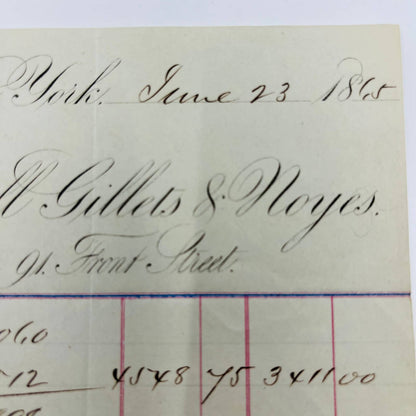 York. June 23 1865
Gillets & Noyes.
91. Front Street.
060
12 4548 75 3411 00